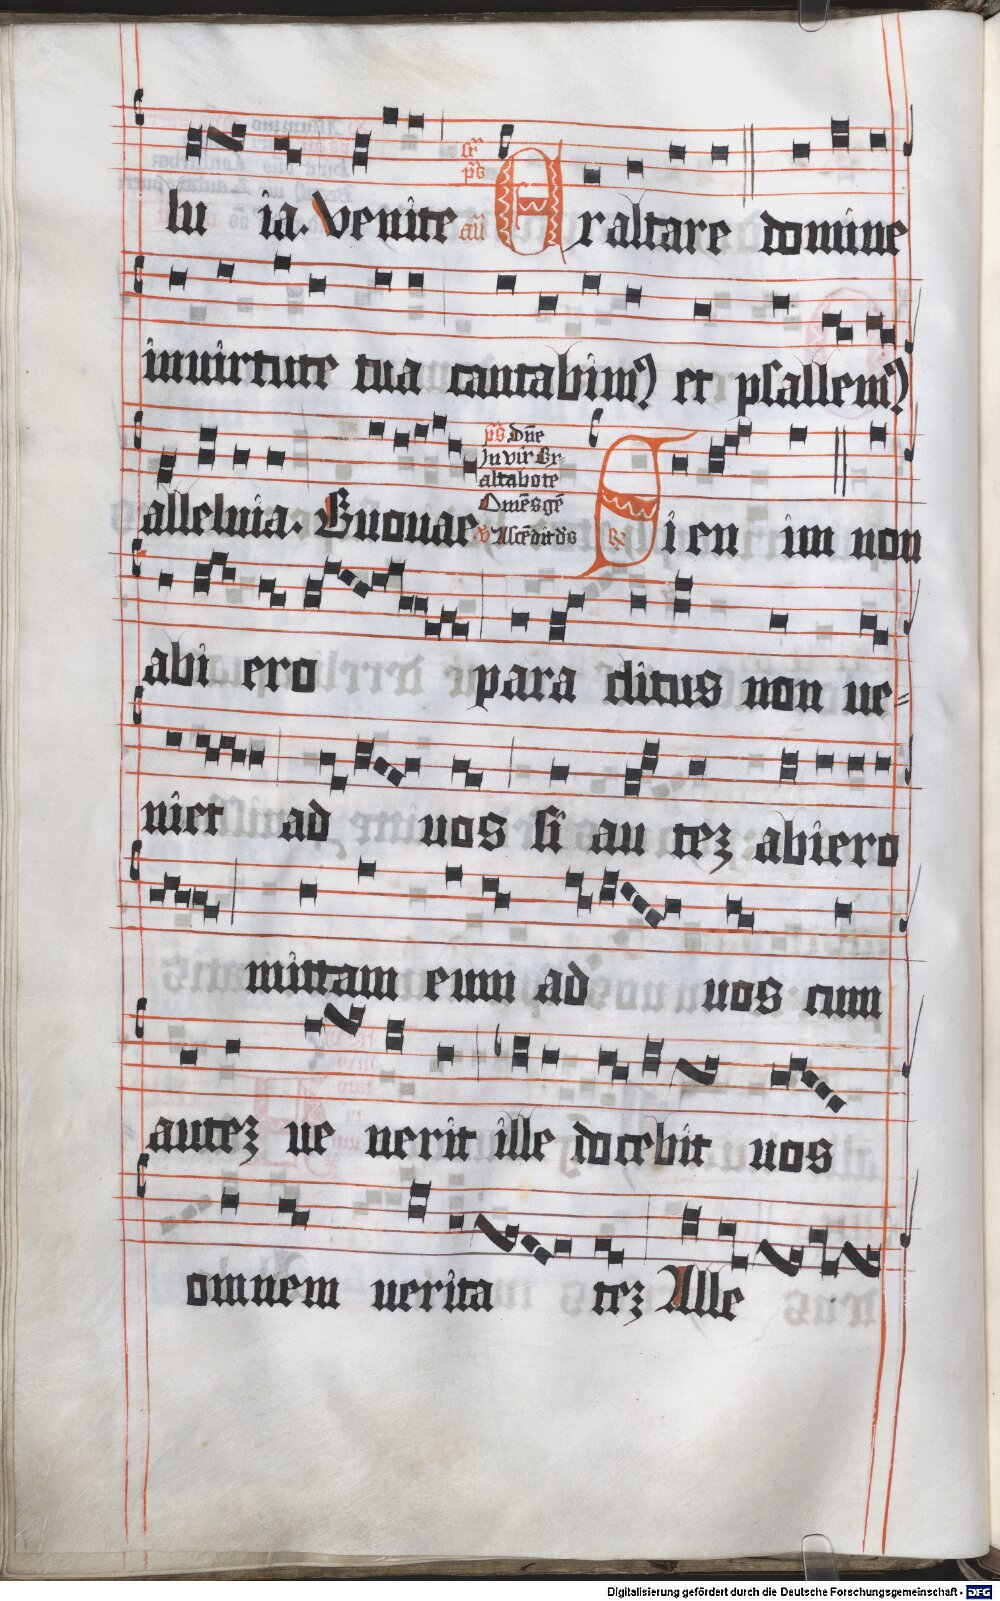 lu ia. Venite añ Exaltare domine
in uirtute tua cantabim⁹ et psallem⁹
alleluia. Euouae ps Dñe
In vir Ex-
altabo te
Om̄s gē
Ascēdit dš ℟ Si en im non
abi ero para clitus non ue⸗
niet ad uos si au teʒ abiero
mittam eum ad uos cum
auteʒ ue nerit ille docebit uos
omnem uerita teʒ Alle
Digitalisierung gefördert durch die Deutsche Forschungsgemeinschaft - DFG